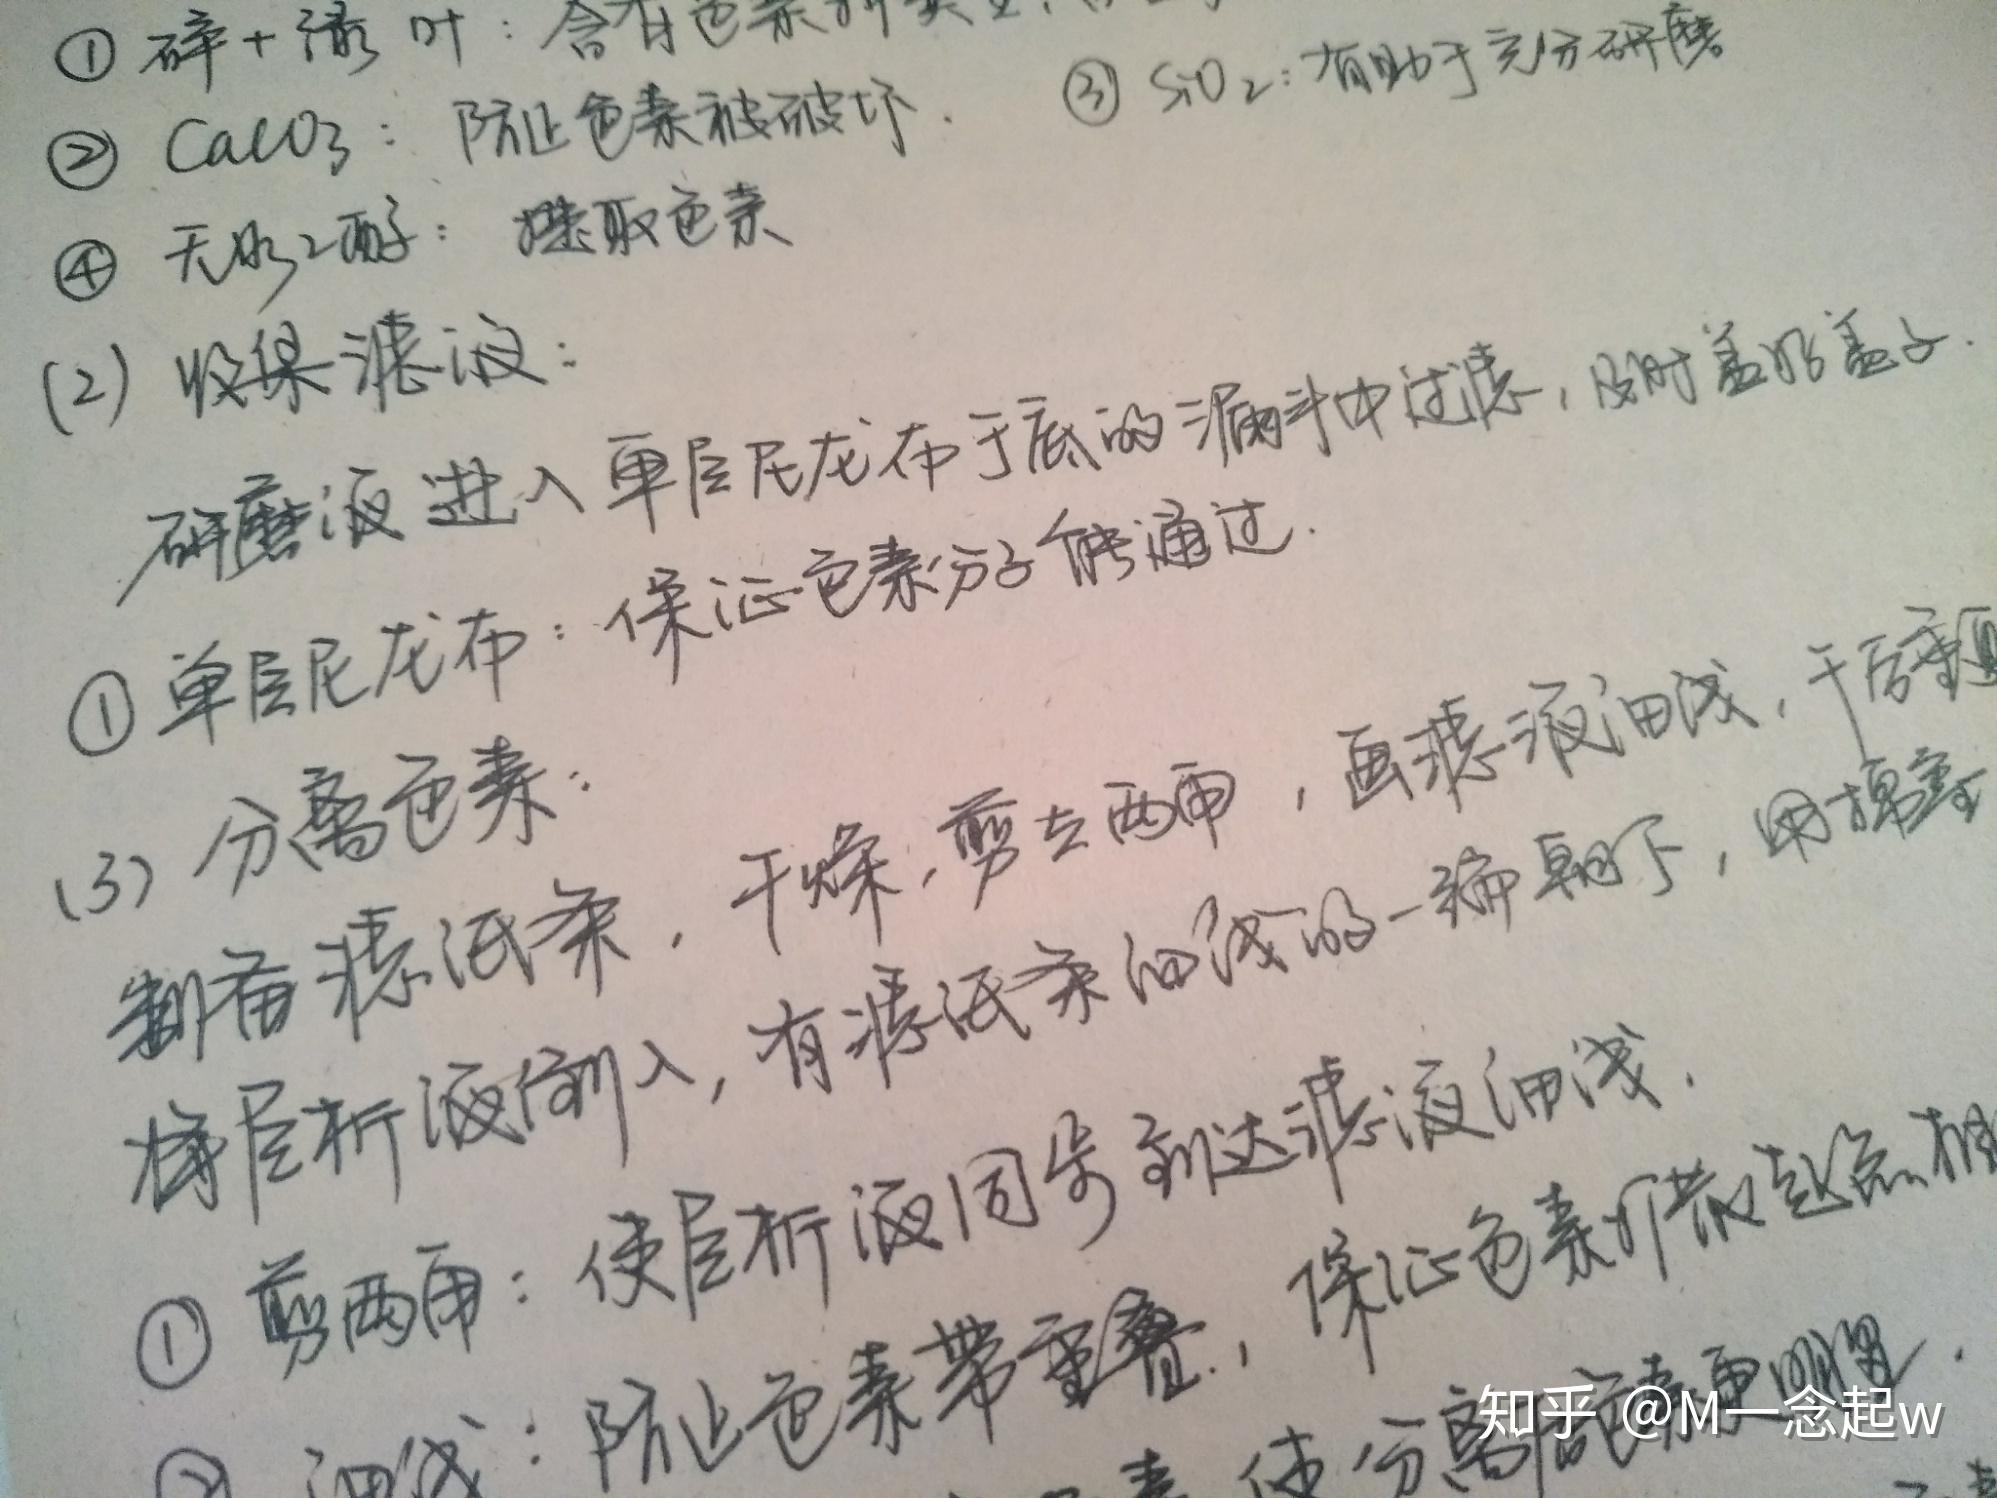 ① 碎+绿叶：含有色素
② CaCO3：防止色素被破坏. ③ SiO2：有助于充分研磨
④ 无水乙醇：提取色素
(2) 收集滤液：
研磨液进入单层尼龙布于底的漏斗中过滤，及时盖好盖子.
① 单层尼龙布：保证色素分子能通过.
(3) 分离色素：
制备滤纸条，干燥，剪去两角，画滤液细线，干后重
将层析液倒入，有滤纸条细线的一端朝下，用棉塞
① 剪两角：使层析液同步到达滤液细线.
② 细线：防止色素带重叠，保证色素扩散起点相
素，使分离色素更明显.
知乎 @M一念起w